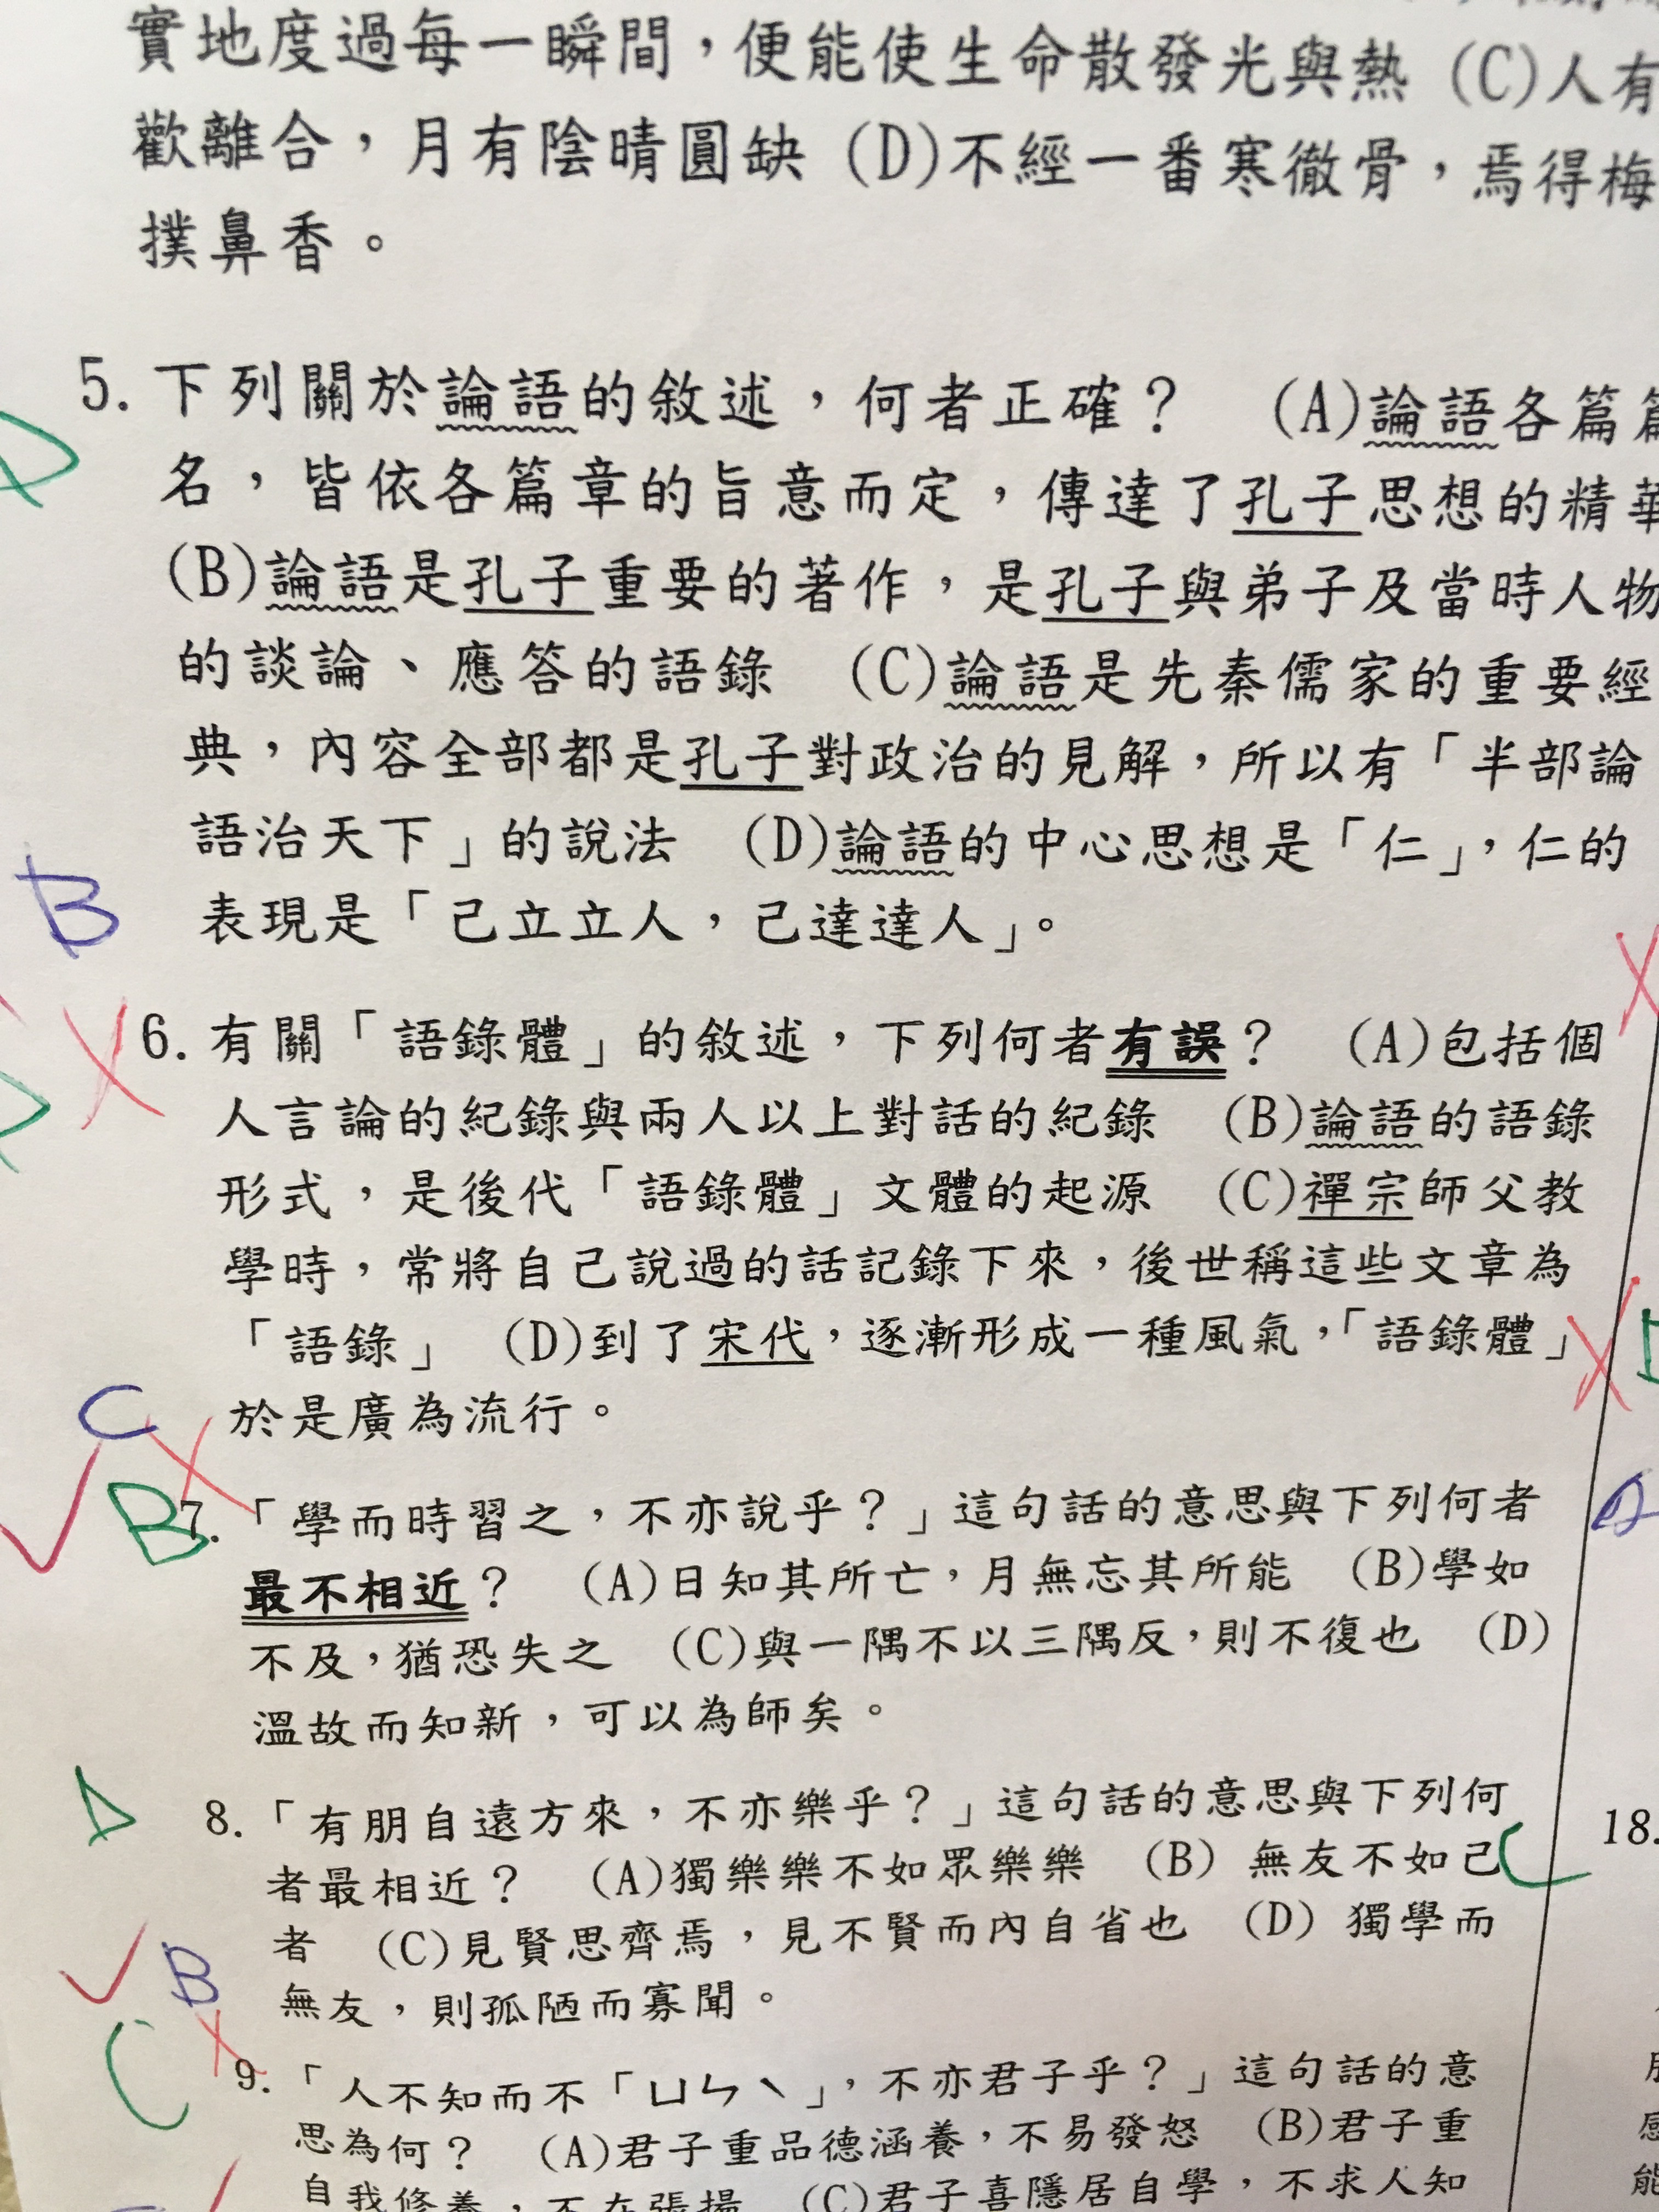 實地度過每一瞬間，便能使生命散發光與熱 (C)人有
歡離合，月有陰晴圓缺 (D)不經一番寒徹骨，焉得梅
撲鼻香。
5. 下列關於論語的敘述，何者正確？ (A)論語各篇篇
名，皆依各篇章的旨意而定，傳達了孔子思想的精華
(B)論語是孔子重要的著作，是孔子與弟子及當時人物
的談論、應答的語錄 (C)論語是先秦儒家的重要經
典，內容全部都是孔子對政治的見解，所以有「半部論
語治天下」的說法 (D)論語的中心思想是「仁」，仁的
表現是「己立立人，己達達人」。
B
6. 有關「語錄體」的敘述，下列何者有誤？ (A)包括個
人言論的紀錄與兩人以上對話的紀錄 (B)論語的語錄
形式，是後代「語錄體」文體的起源 (C)禪宗師父教
學時，常將自己說過的話記錄下來，後世稱這些文章為
「語錄」 (D)到了宋代，逐漸形成一種風氣，「語錄體」
於是廣為流行。
C
B
7. 「學而時習之，不亦說乎？」這句話的意思與下列何者
最不相近？ (A)日知其所亡，月無忘其所能 (B)學如
不及，猶恐失之 (C)與一隅不以三隅反，則不復也 (D)
溫故而知新，可以為師矣。
D
8. 「有朋自遠方來，不亦樂乎？」這句話的意思與下列何
者最相近？ (A)獨樂樂不如眾樂樂 (B) 無友不如己
者 (C)見賢思齊焉，見不賢而內自省也 (D) 獨學而
無友，則孤陋而寡聞。
B
C
9. 「人不知而不「ㄩㄣˋ」，不亦君子乎？」這句話的意
思為何？ (A)君子重品德涵養，不易發怒 (B)君子重
自我修養，不在張揚 (C)君子喜隱居自學，不求人知
C
18.